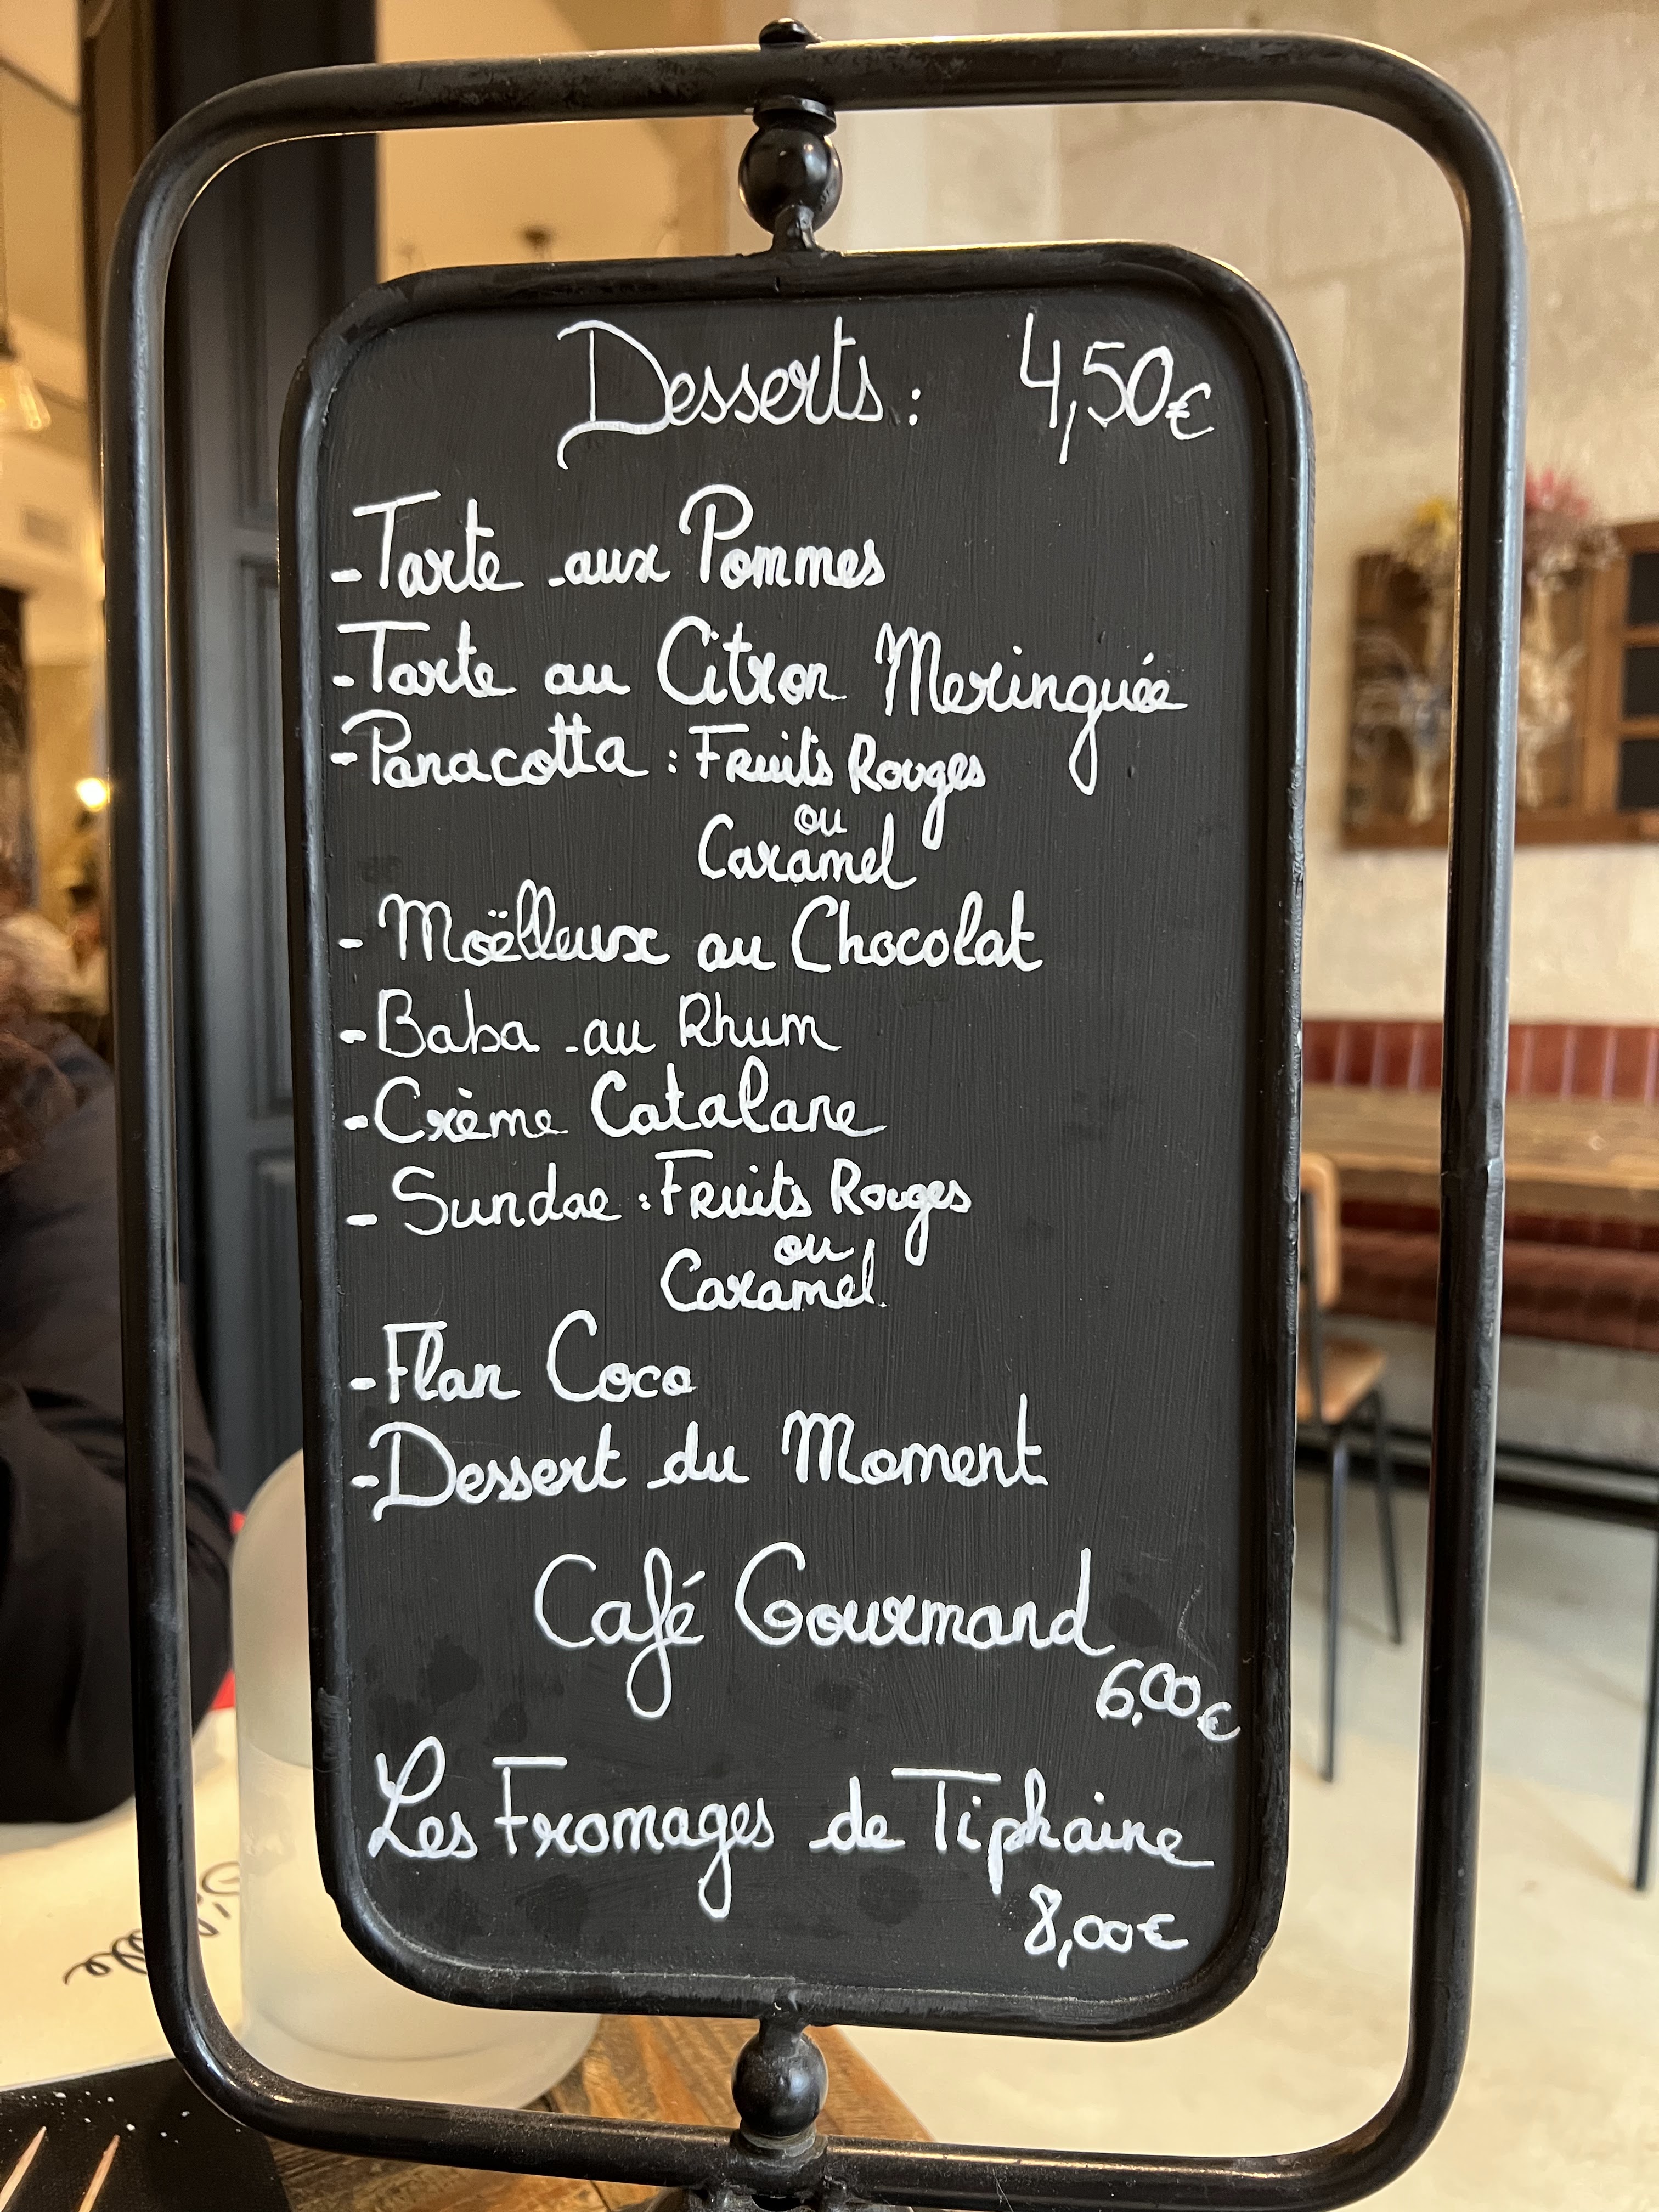 Desserts : 4,50€
- Tarte aux Pommes
- Tarte au Citron Meringuée
- Panacotta : Fruits Rouges
ou
Caramel
- Moëlleux au Chocolat
- Baba au Rhum
- Crème Catalane
- Sundae : Fruits Rouges
ou
Caramel
- Flan Coco
- Dessert du Moment
Café Gourmand
6,00€
Les Fromages de Tiphaine
8,00€